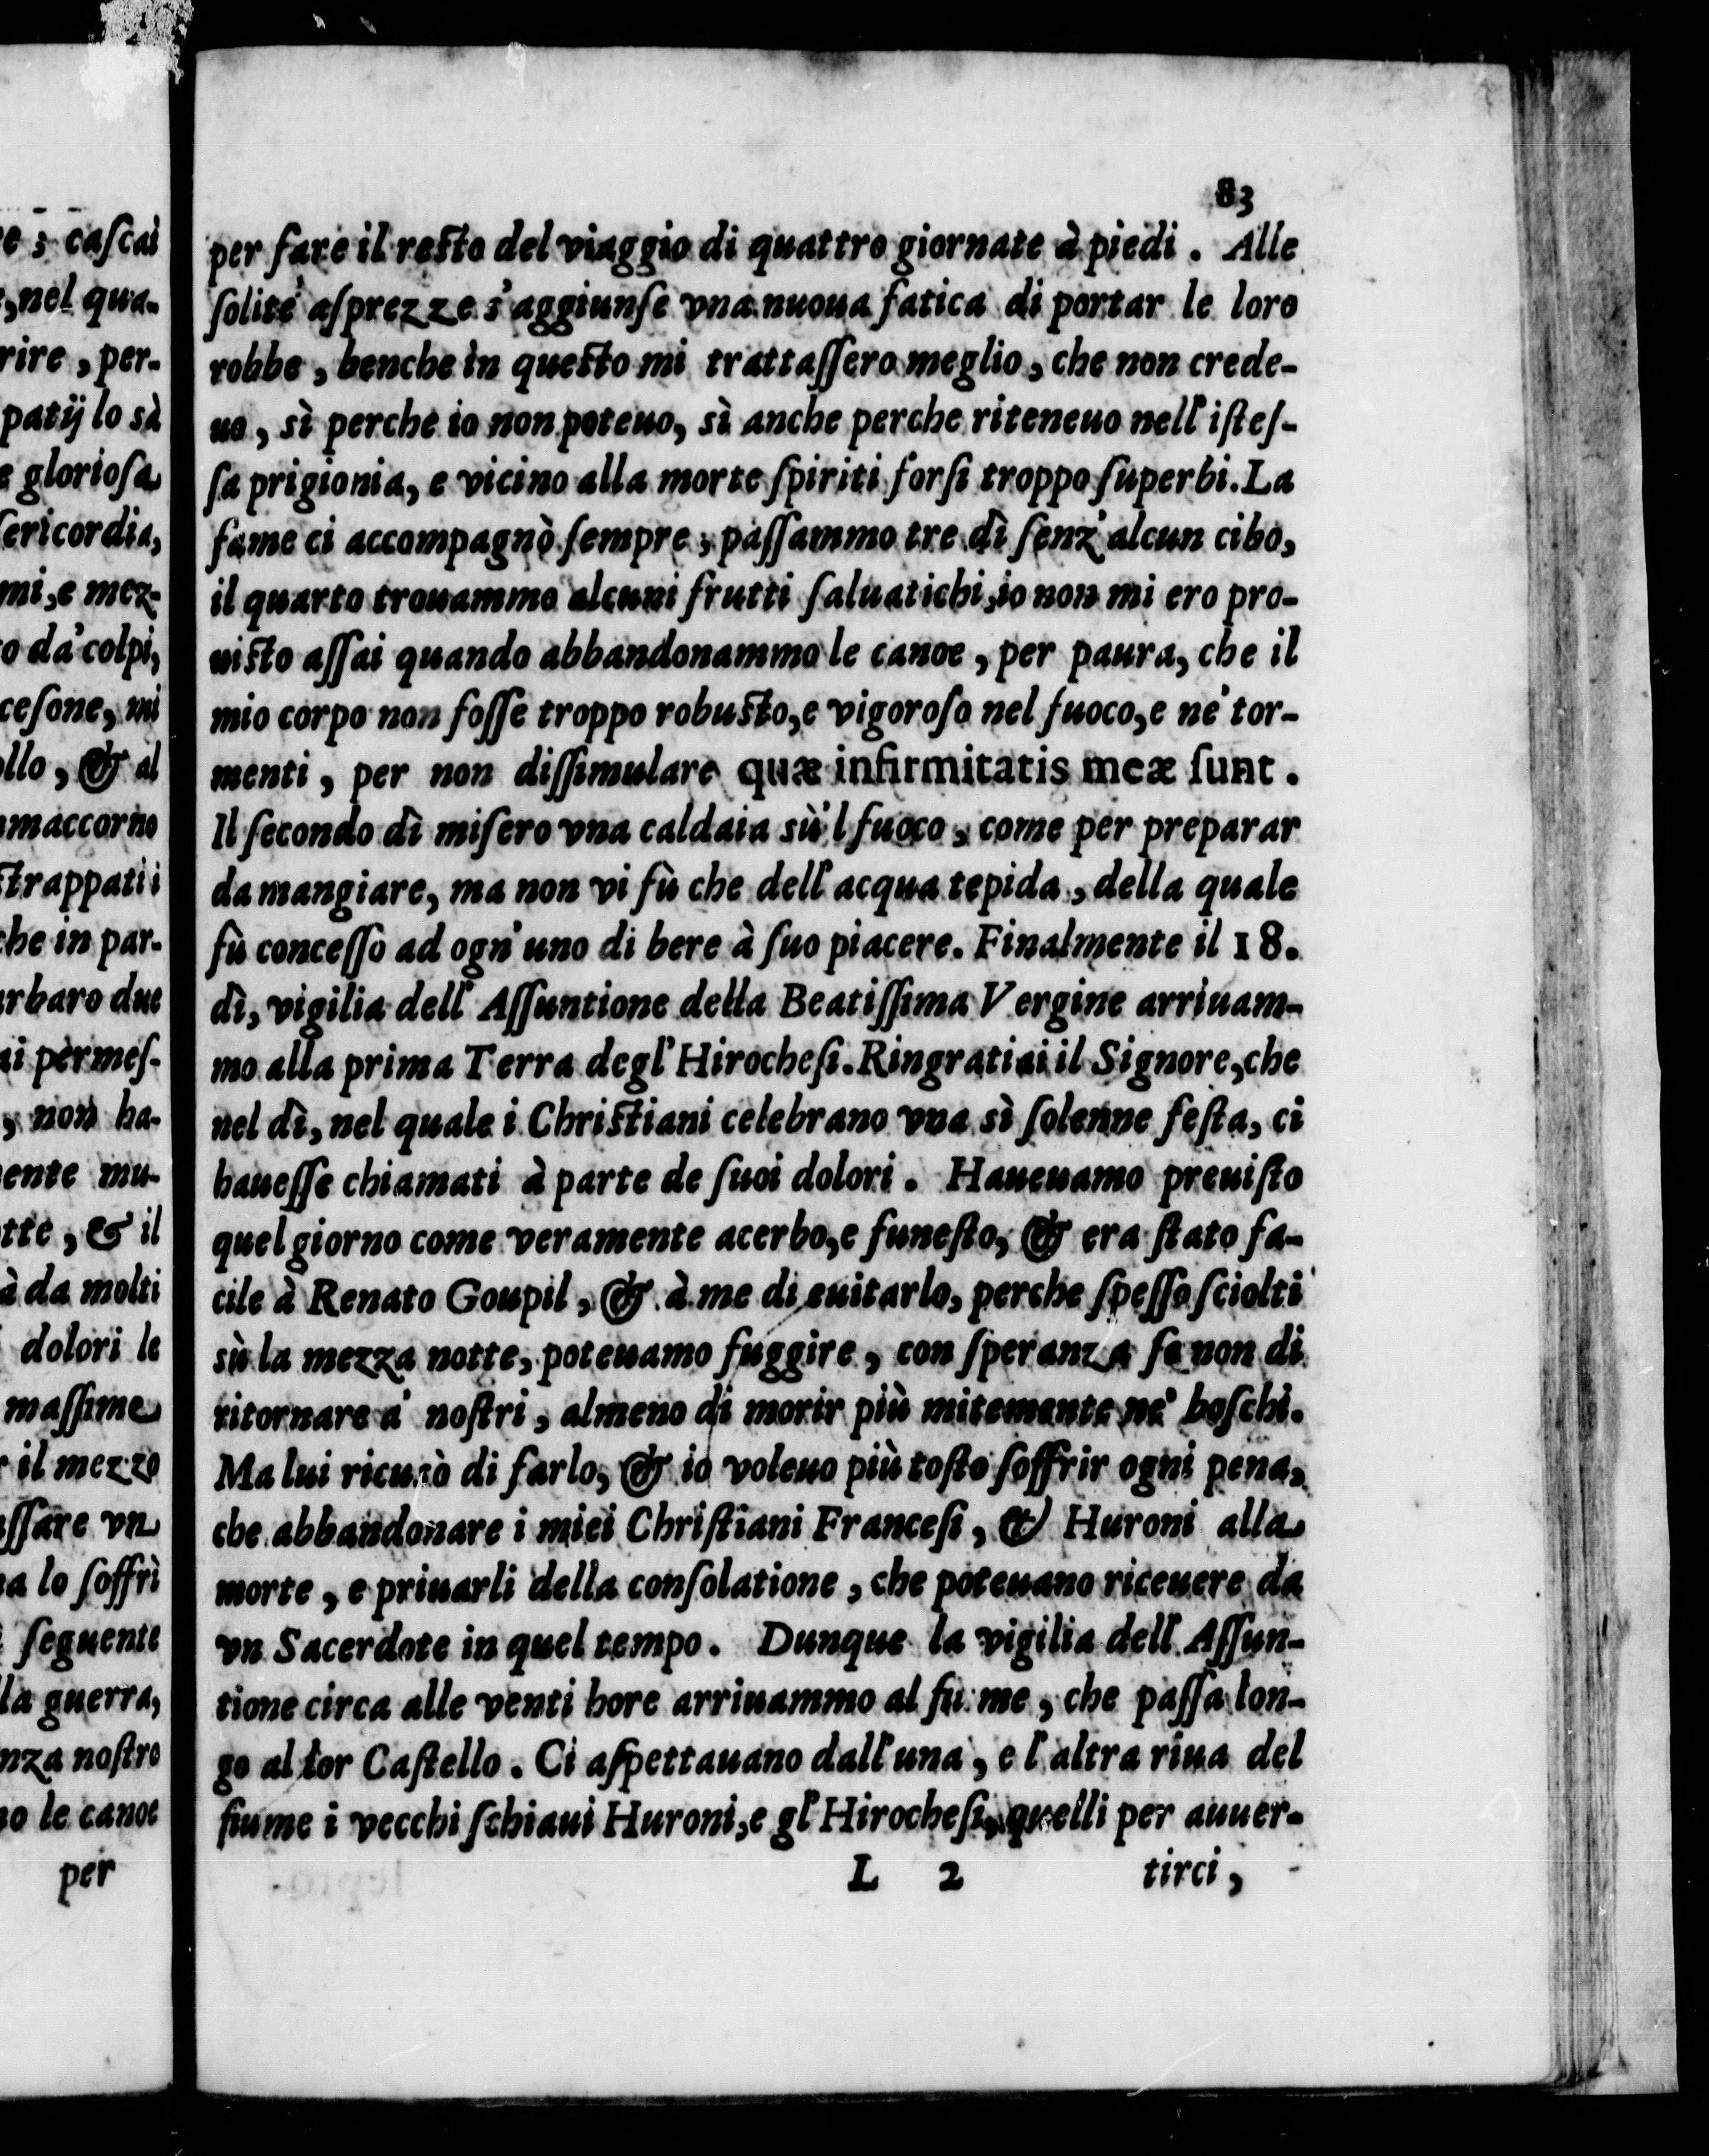 83
per fare il reſto del viaggio di quattro giornate à piedi. Alle
ſolite aſprezze s'aggiunſe vna nuoua fatica di portar le loro
robbe, benche in queſto mi trattaſſero meglio, che non crede-
uo, sì perche io non poteuo, sì anche perche riteneuo nell'iſteſ-
ſa prigionia, e vicino alla morte ſpiriti forſi troppo ſuperbi. La
fame ci accompagnò ſempre; paſſammo tre dì ſenz'alcun cibo,
il quarto trouammo alcuni frutti ſaluatichi, io non mi ero pro-
uiſto aſſai quando abbandonammo le canoe, per paura, che il
mio corpo non foſſe troppo robuſto, e vigoroſo nel fuoco, e ne' tor-
menti, per non diſſimulare quæ infirmitatis meæ ſunt.
Il ſecondo dì miſero vna caldaia sù'l fuoco, come per preparar
da mangiare, ma non vi fù che dell'acqua tepida, della quale
fù conceſſo ad ogn'uno di bere à ſuo piacere. Finalmente il 18.
dì, vigilia dell'Aſſuntione della Beatiſſima Vergine arriuam-
mo alla prima Terra degl'Hirocheſi. Ringratiai il Signore, che
nel dì, nel quale i Chriſtiani celebrano vna sì ſolenne feſta, ci
haueſſe chiamati à parte de ſuoi dolori. Haueuamo preuiſto
quel giorno come veramente acerbo, e funeſto, & era ſtato fa-
cile à Renato Goupil, & à me di euitarlo, perche ſpeſſo ſciolti
sù la mezza notte, poteuamo fuggire, con ſperanza ſe non di
ritornare a' noſtri, almeno di morir più mitemente ne' boſchi.
Ma lui ricusò di farlo, & io voleuo più toſto ſoffrir ogni pena,
che abbandonare i miei Chriſtiani Franceſi, & Huroni alla
morte, e priuarli della conſolatione, che poteuano riceuere da
vn Sacerdote in quel tempo. Dunque la vigilia dell'Aſſun-
tione circa alle venti hore arriuammo al fiume, che paſſa lon-
go al lor Caſtello. Ci aſpettauano dall'una, e l'altra riua del
fiume i vecchi ſchiaui Huroni, e gl'Hirocheſi, quelli per auuer-
L 2 tirci,
e ; caſcai
, nel qua-
rire, per-
patij lo sà
e glorioſa
ſericordia,
mi, e mez-
o da' colpi,
ceſone, mi
ollo, & al
maccorno
ſtrappati i
che in par-
rbaro due
i permeſ-
, non ha-
ente mu-
tte, & il
à da molti
dolori le
maſſime
il mezzo
ſſare vn
a lo ſoffrì
ſeguente
la guerra,
nza noſtro
no le canoe
per